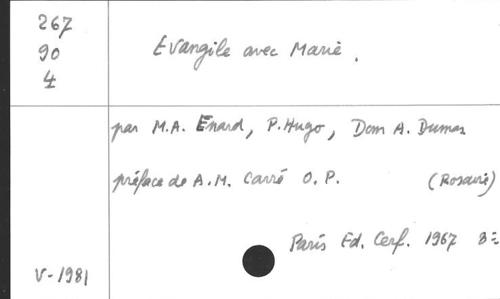 267
90
4
Evangile avec Marie.
par M.A. Enard, P. Hugo, Dom A. Dumas
préface de A.M. Carré O.P. (Rosaire)
Paris Ed. Cerf. 1967 8=
V-1981